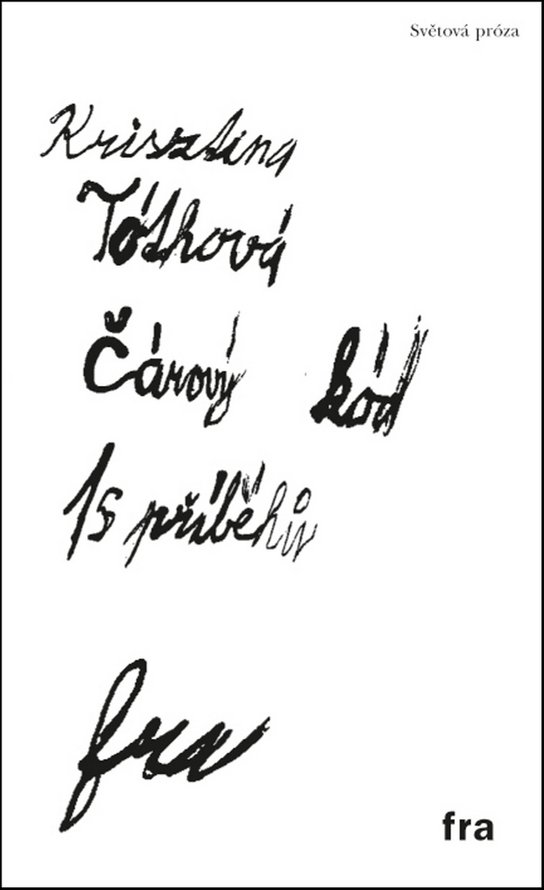 Světová próza
Krisztina
Tóthová
Čárový kód
15 příběhů
fra
fra